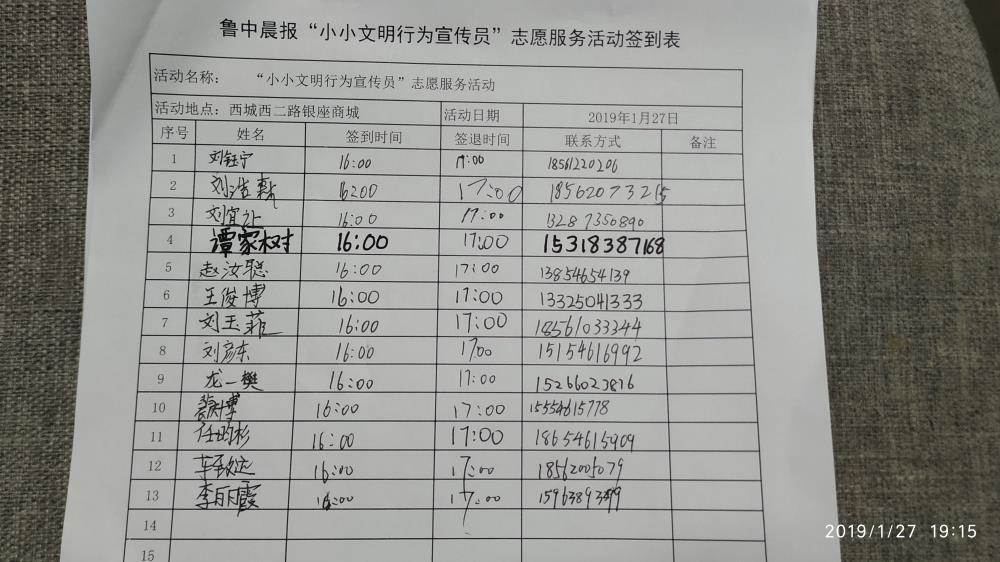 鲁中晨报“小小文明行为宣传员”志愿服务活动签到表
活动名称： “小小文明行为宣传员”志愿服务活动
活动地点：西城西二路银座商城 活动日期 2019年1月27日
序号 姓名 签到时间 签退时间 联系方式 备注
1 刘钰宁 16:00 17:00 18561220206
2 刘浩 16:00 17:00 18562073215
3 刘宜让 16:00 17:00 13287350890
4 谭家树 16:00 17:00 15318387168
5 赵汝聪 16:00 17:00 13854654139
6 王俊博 16:00 17:00 13325041333
7 刘玉菲 16:00 17:00 18561033344
8 刘彦东 16:00 17:00 15154616992
9 龙一樊 16:00 17:00 15266023876
10 16:00 17:00 15554615778
11 任昀杉 16:00 17:00 18654615909
12 车致远 16:00 17:00 18562005079
13 李丽霞 16:00 17:00
14
15
2019/1/27 19:15